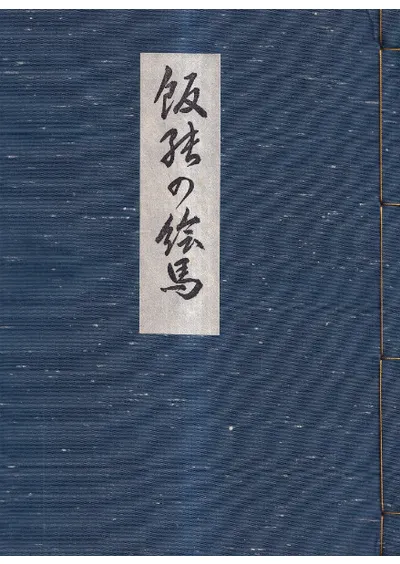 飯能の絵馬